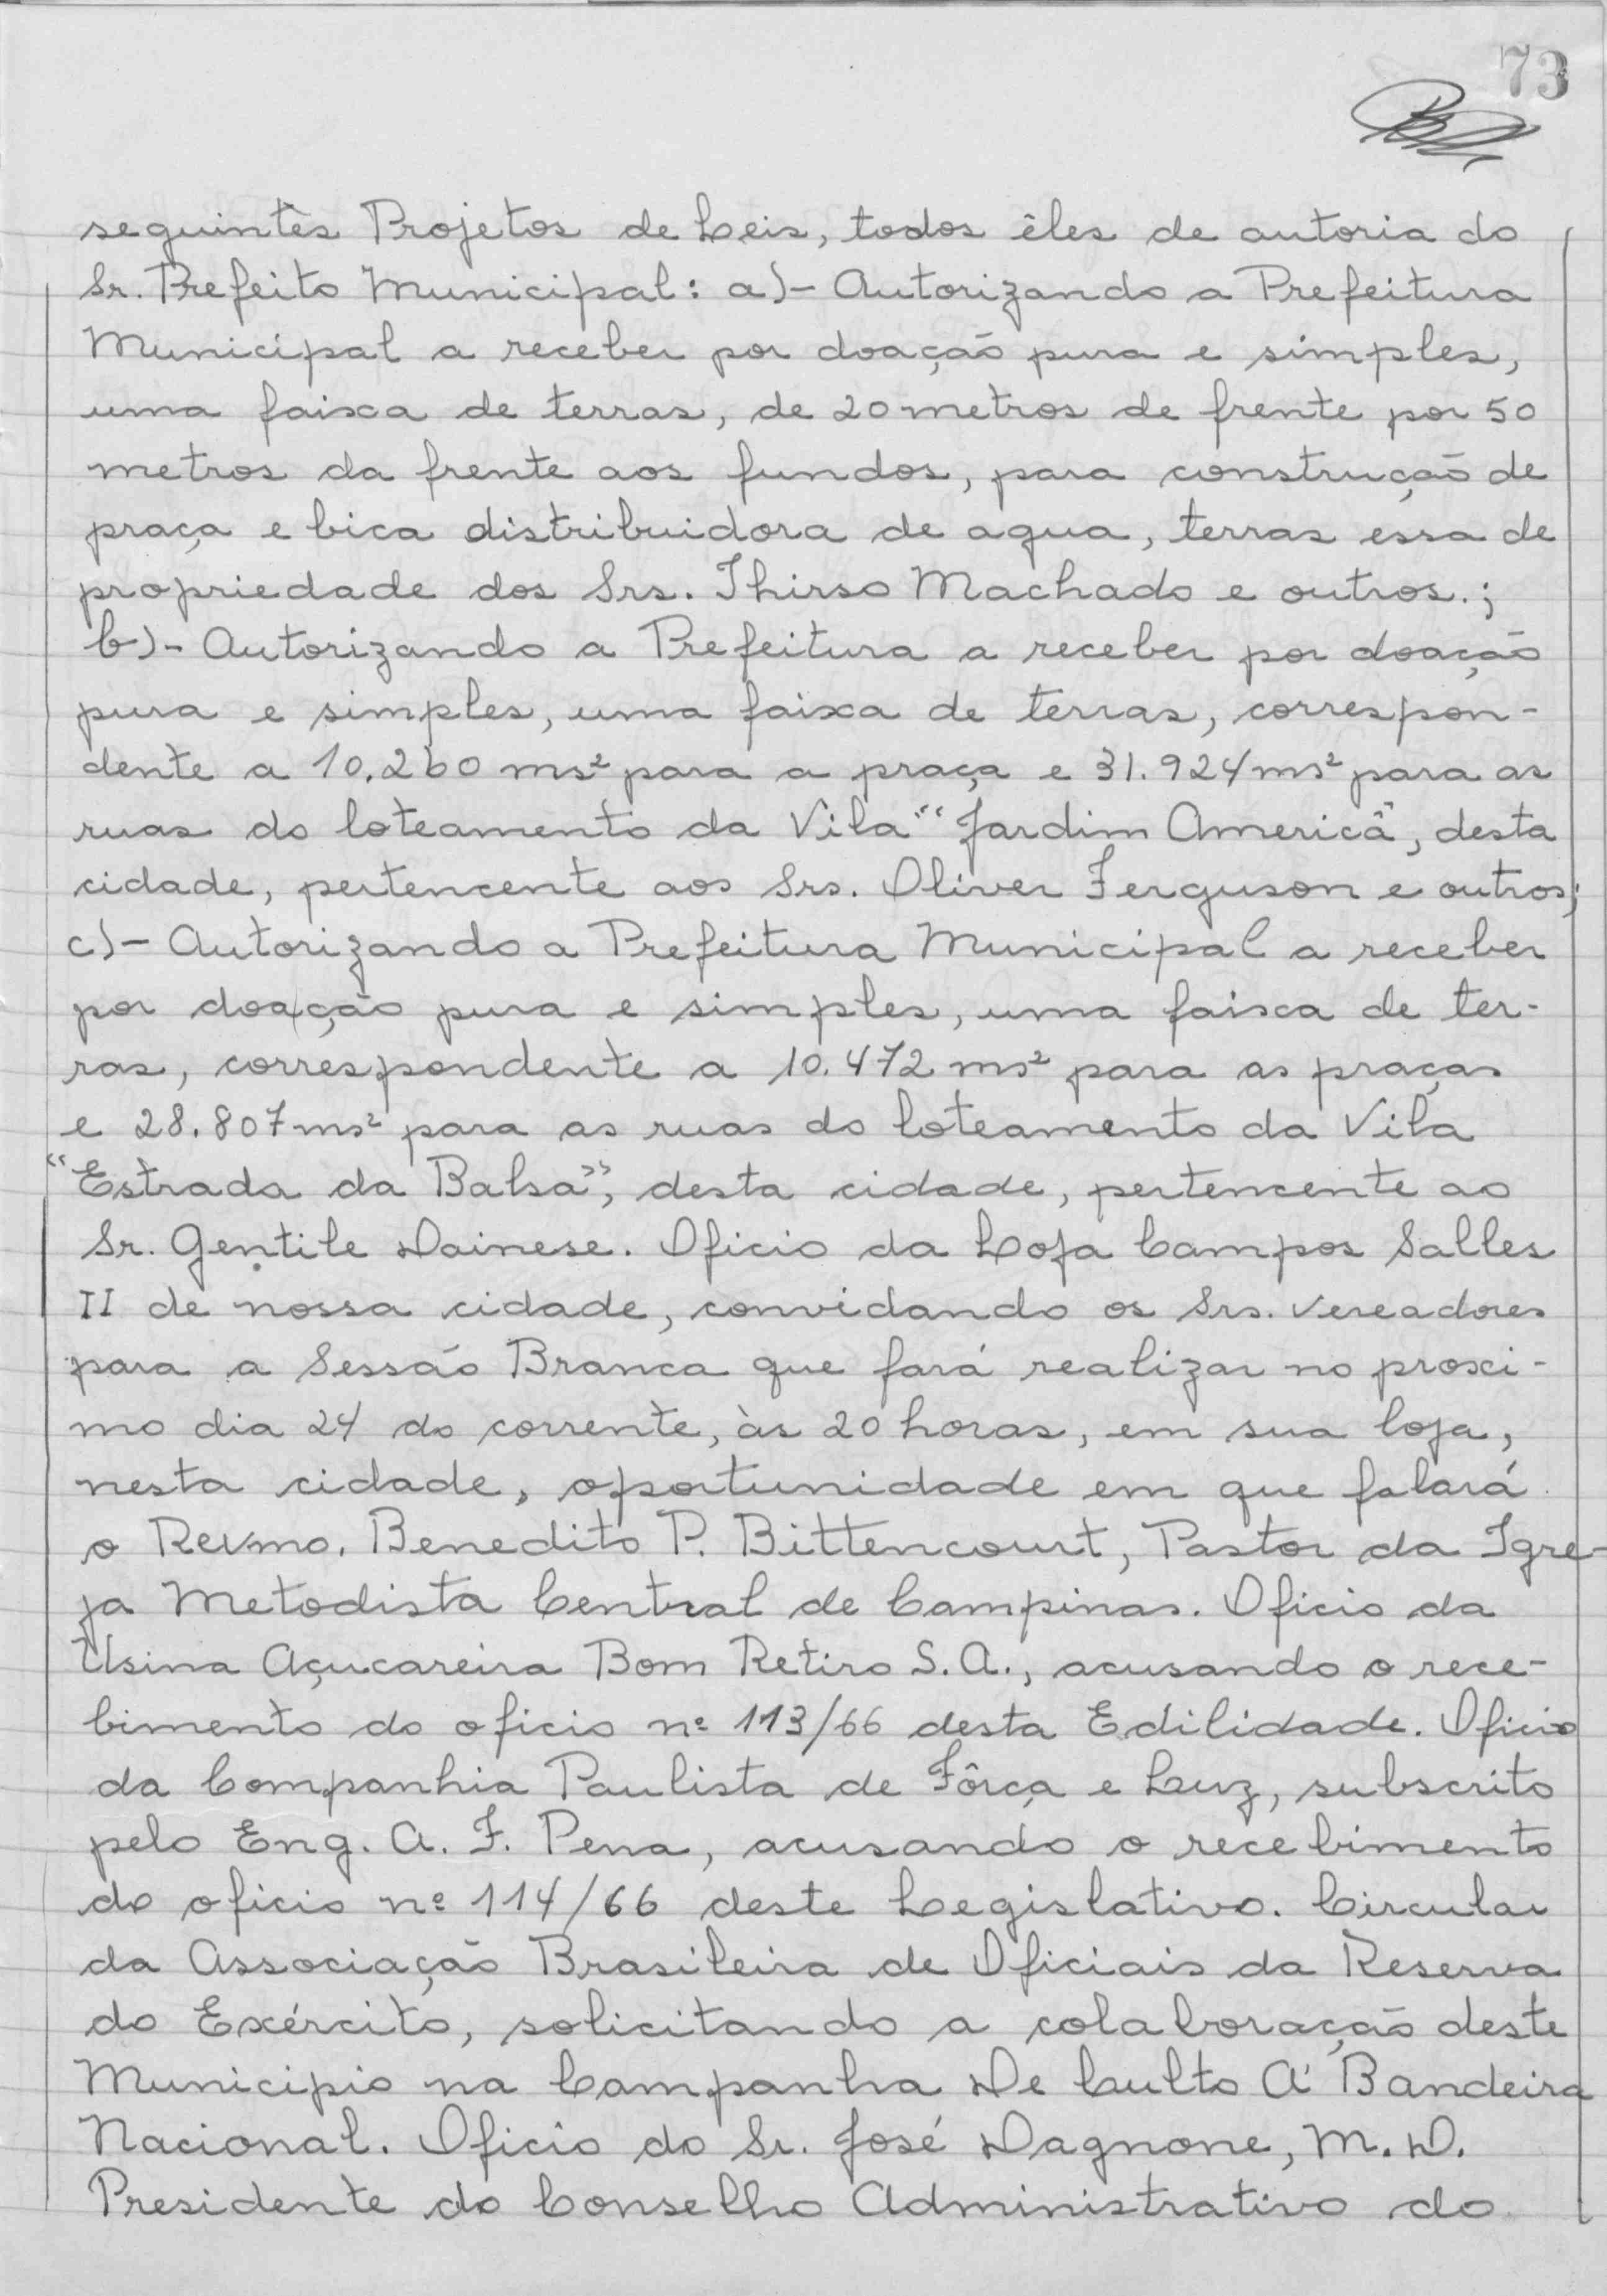 73
seguintes Projetos de Leis, todos êles de autoria do
Sr. Prefeito Municipal: a)- Autorizando a Prefeitura
Municipal a receber por doação pura e simples,
uma faixa de terras, de 20 metros de frente por 50
metros da frente aos fundos, para construção de
praça e bica distribuidora de agua, terras essa de
propriedade dos Srs. Thirso Machado e outros.;
b)- Autorizando a Prefeitura a receber por doação
pura e simples, uma faixa de terras, correspon-
dente a 10.260 ms² para a praça e 31.924 ms² para as
ruas do loteamento da Vila "Jardim America", desta
cidade, pertencente aos Srs. Oliver Ferguson e outros;
c)- Autorizando a Prefeitura Municipal a receber
por doação pura e simples, uma faixa de ter-
ras, correspondente a 10.472 ms² para as praças
e 28.807 ms² para as ruas do loteamento da Vila
"Estrada da Balsa", desta cidade, pertencente ao
Sr. Gentile Dainese. Oficio da Loja Campos Salles
II de nossa cidade, convidando os Srs. Vereadores
para a Sessão Branca que fará realizar no proxi-
mo dia 24 do corrente, às 20 horas, em sua loja,
nesta cidade, oportunidade em que falará
o Revmo. Benedito P. Bittencourt, Pastor da Igre-
ja Metodista Central de Campinas. Oficio da
Usina Açucareira Bom Retiro S.A., acusando o rece-
bimento do oficio nº 113/66 desta Edilidade. Oficio
da Companhia Paulista de Fôrça e Luz, subscrito
pelo Eng. A. F. Pena, acusando o recebimento
do oficio nº 114/66 deste Legislativo. Circular
da Associação Brasileira de Oficiais da Reserva
do Exército, solicitando a colaboração deste
Municipio na Campanha De Culto Á Bandeira
Nacional. Oficio do Sr. José Dagnone, M.D.
Presidente do Conselho Administrativo do